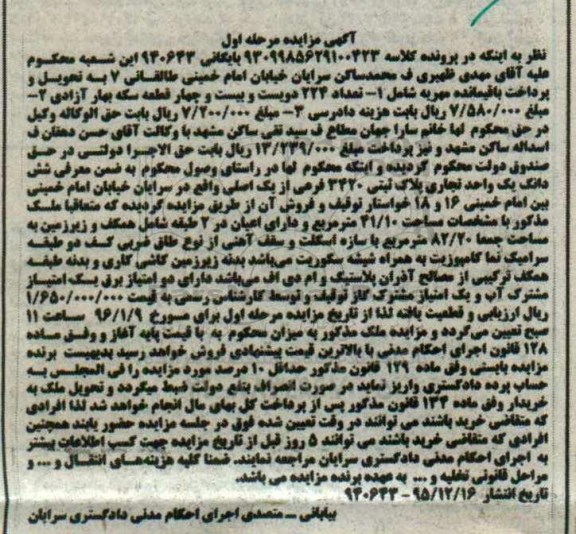 آگهی مزایده مرحله اول
نظر به اینکه در پرونده کلاسه ۹۳۰۹۹۸۵۶۲۹۱۰۰۴۲۳ بایگانی ۹۴۰۶۴۳ این شعبه محکوم
علیه آقای مهدی ظهیری ف محمدساکن سرایان خیابان امام خمینی طالقانی ۷ به تحویل و
پرداخت باقیمانده مهریه شامل ۱- تعداد ۲۲۴ دویست و بیست و چهار قطعه سکه بهار آزادی ۲-
مبلغ ۷/۵۸۰/۰۰۰ ریال بابت هزینه دادرسی ۳- مبلغ ۷/۲۰۰/۰۰۰ ریال بابت حق الوکاله وکیل
در حق محکوم لها خانم سارا جهان مطاع ف سید تقی ساکن مشهد با وکالت آقای حسن دهقان ف
اسداله ساکن مشهد و نیز پرداخت مبلغ ۱۳/۲۳۹/۰۰۰ ریال بابت حق الاجسرا دولتی در حق
صندوق دولت محکوم گردیده و اینکه محکوم لها در راستای وصول محکوم به ضمن معرفی شش
دانگ یک واحد تجاری پلاک ثبتی ۳۴۲۰ فرعی از یک اصلی واقع در سرایان خیابان امام خمینی
بین امام خمینی ۱۶ و ۱۸ خواستار توقیف و فروش آن از طریق مزایده گردیده که متعاقبا ملک
مذکور با مشخصات مساحت ۴۱/۱۰ مترمربع و دارای اعیان در ۲ طبقه شامل همکف و زیرزمین به
مساحت جمعا ۸۲/۲۰ مترمربع با سازه اسکلت و سقف آهنی از نوع طاق ضربی کف دو طبقه
سرامیک نما کامپوزیت به همراه شیشه سکوریت می‌باشد بدنه زیرزمین کاشی کاری و بدنه طبقه
همکف ترکیبی از مصالح آذران پلاستیک و ام دی اف می‌باشد دارای دو امتیاز برق یک امتیاز
مشترک آب و یک امتیاز مشترک گاز توقیف و توسط کارشناس رسمی به قیمت ۱/۶۵۰/۰۰۰/۰۰۰
ریال ارزیابی و قطعیت یافته لذا از تاریخ مزایده مرحله اول برای مسورخ ۹۶/۱/۹ ساعت ۱۱
صبح تعیین می‌گردد و مزایده ملک مذکور به میزان محکوم به با قیمت پایه آغاز و وفق ماده
۱۲۸ قانون اجرای احکام مدنی با بالاترین قیمت پیشنهادی فروش خواهد رسید بدیهیست برنده
مزایده بایستی وفق ماده ۱۲۹ قانون مذکور حداقل ۱۰ درصد مورد مزایده را فی المجلس به
حساب سپرده دادگستری واریز نماید در صورت انصراف بنفع دولت ضبط میگردد و تحویل ملک به
خریدار وفق ماده ۱۳۴ قانون مذکور پس از پرداخت کل بهای مال انجام خواهد شد لذا افرادی
که متقاضی خرید باشند می توانند در وقت تعیین شده فوق در جلسه مزایده حضور یابند همچنین
افرادی که متقاضی خرید باشند می توانند ۵ روز قبل از تاریخ مزایده جهت کسب اطلاعات بیشتر
به اجرای احکام مدنی دادگستری سرایان مراجعه نمایند. ضمنا کلیه هزینه‌های انتقال و ... و
مراحل قانونی تخلیه و ... به عهده برنده مزایده می باشد.
تاریخ انتشار ۹۵/۱۲/۱۶ - ۹۴۰۶۴۳
بیابانی – متصدی اجرای احکام مدنی دادگستری سرایان